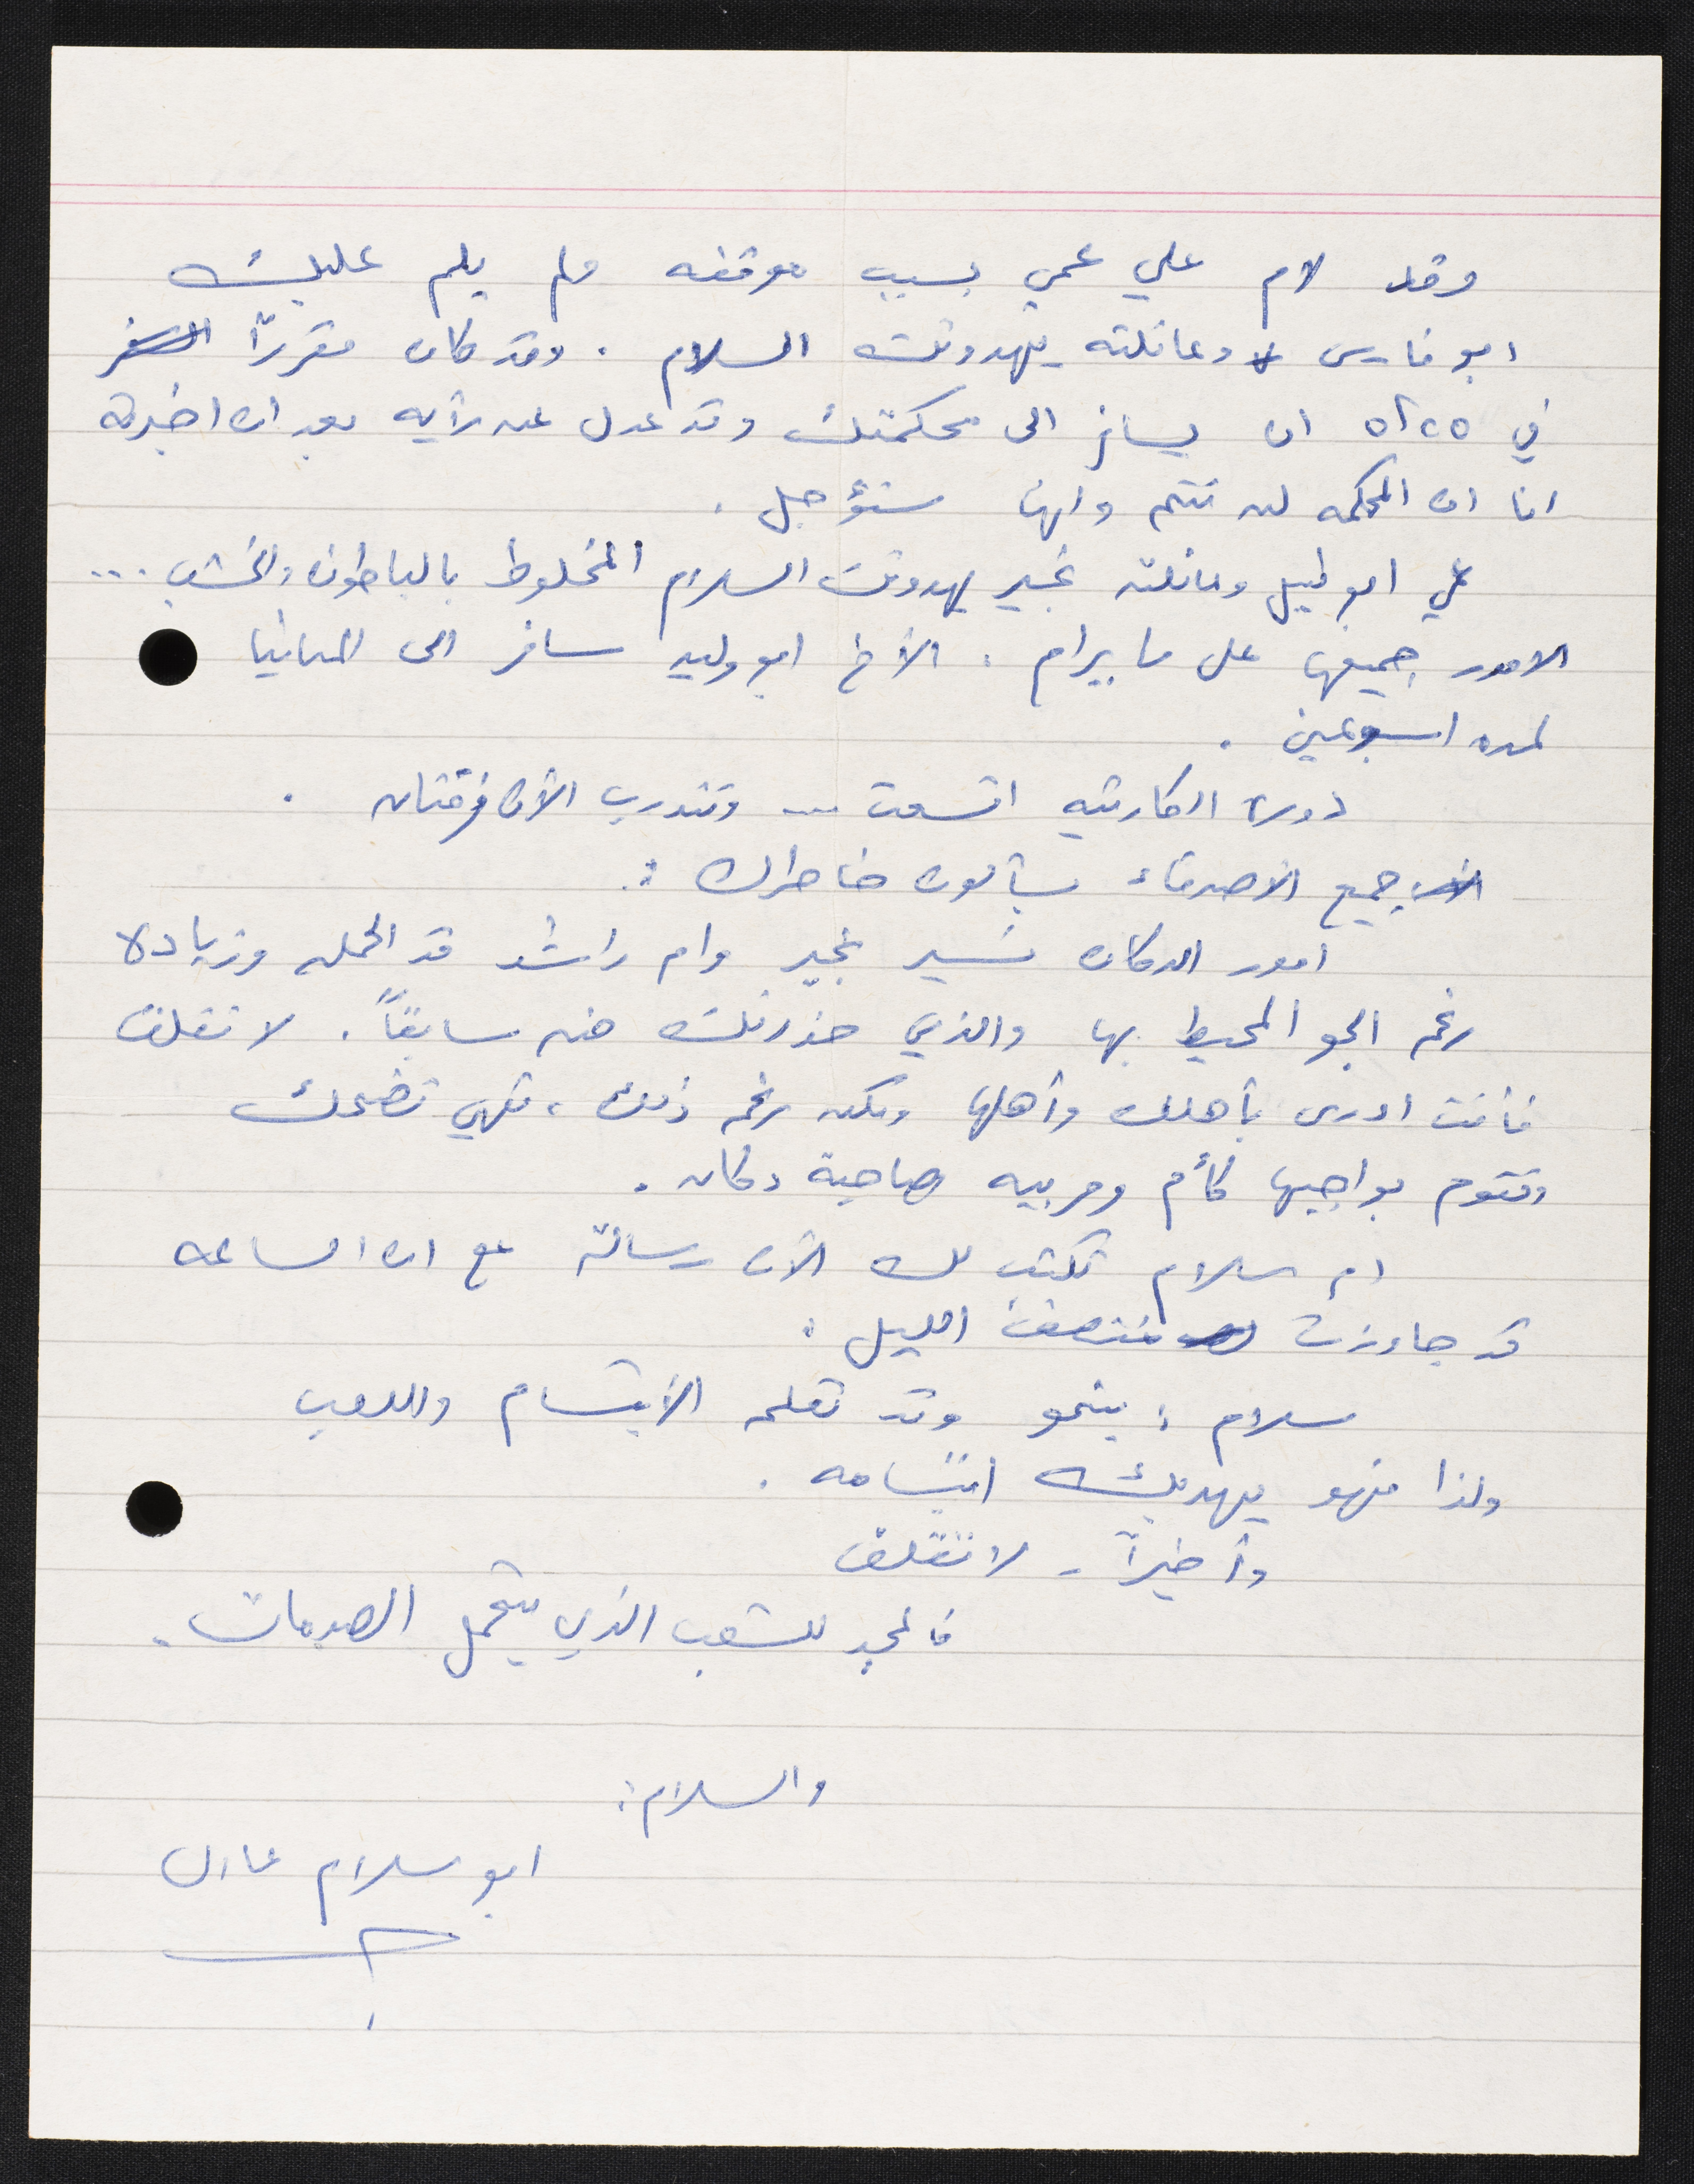 وقد لام علي عمي بسبب موقفه ولم يلم عليك
ابو فارس وعائلته يهدونك السلام . وقد كان مقرراً السفر
في ٢٥/٥ ان يسافر الى محكمتك وقد عدل عن رأيه بعد ان اخبرته
انا ان المحكمه لن تتم وانها ستؤجل .
عمي ابو نبيل وعائلته بخير يهدونك السلام المخلوط بالباطون والخشب ...
الامور جميعها على ما يرام . الأخ ابو وليد سافر الى المانيا
لمده اسبوعين .
دورة الكارتيه اتسعت ... وتتدرب الآن فرقتان .
جميع الأصدقاء يسألون خاطرك .
امور الدكان تسير بخير وام راشد قد الحمله وزياده
رغم الجو المحيط بها والذي حذرتك منه سابقاً . لا تقلق
فأنت ادرى بأهلك وأهلها ولكن رغم ذلك ، فهي تضحك
وتقوم بواجبها كأم ومربيه وصاحبة دكان .
ام سلام تكتب لك الآن رسالة مع ان الساعه
قد جاوزت منتصف الليل .
سلام : ينمو وقد تعلم الأبتسام واللعب
ولذا فهو يهديك ابتسامه .
وأخيراً - لا تقلق
فالمجد للشعب الذي يتحمل الصدمات .
والسلام :
ابو سلام عادل